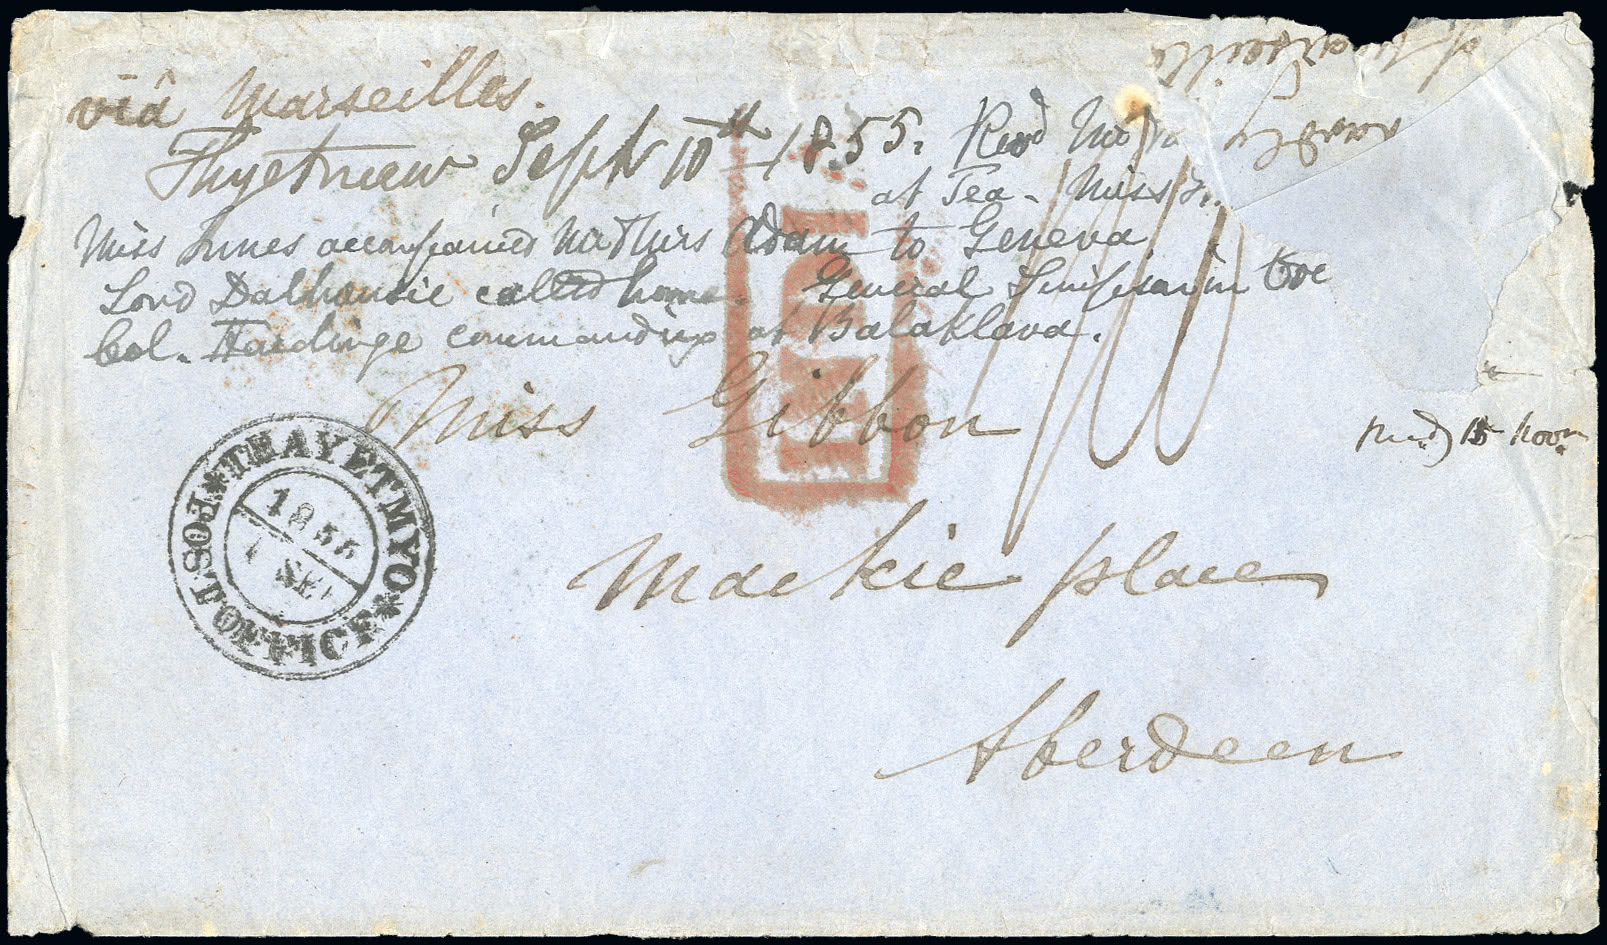 via Marseilles.
Thyetmew Sept 10th 1855. Recd
at Tea - Miss
Miss Innes accompanied Mr & Mrs Adam to Geneva
Lord Dalhousie called home. General Simpson in
Col. Hardinge commanding at Balaklava.
Miss Gibbon
Mackie place
Aberdeen
THAYETMYO
POST OFFICE
1855
SEP
INDIA
15 Noon
Marseilles